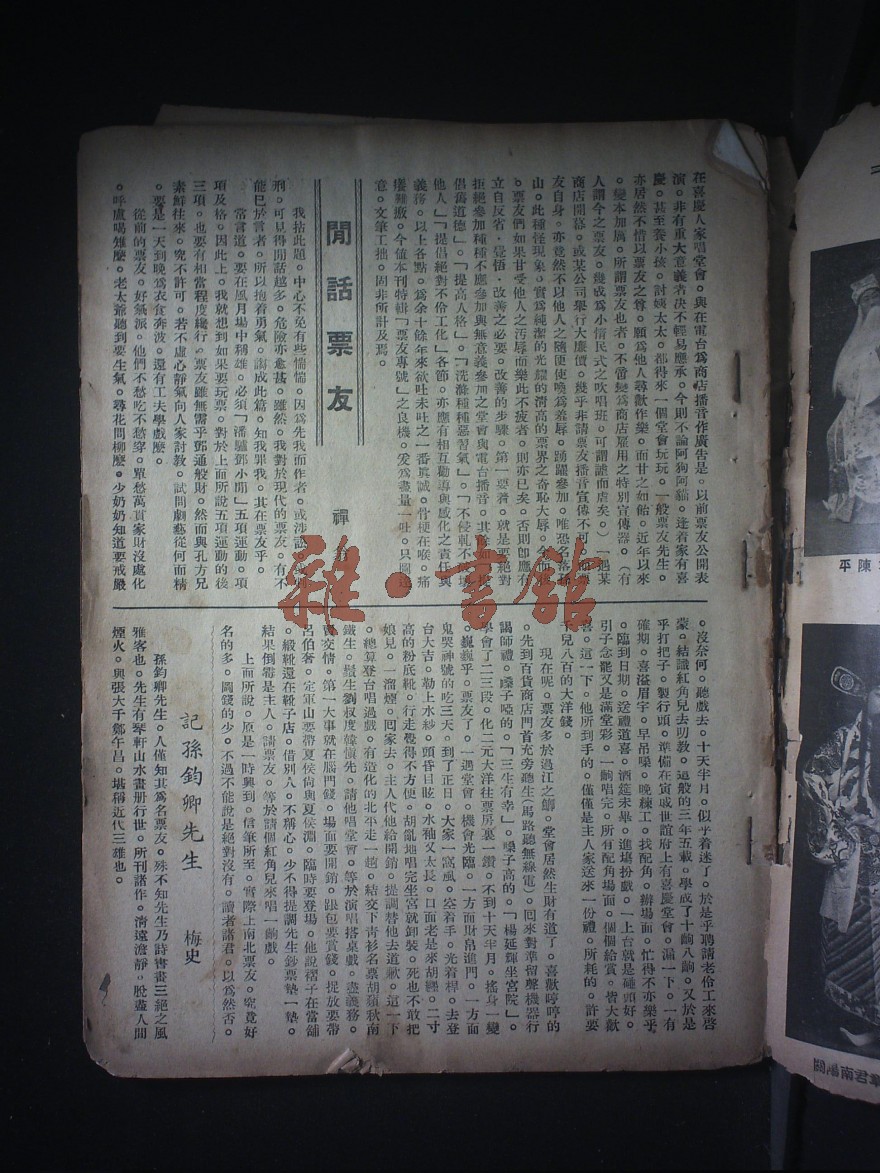 在喜慶人家唱堂會。與在電台爲商店播音作廣告是。以前票友公開表
演。非有重大意義者决不輕易應承。今則不論阿狗阿貓。逢着家有喜
慶。甚至養小孩。討姨太太。都得來一個堂會玩玩。一般票友先生。
亦居然不惜以票友之尊。願爲他人尋歡作樂。而甘之如飴。近年以來
。變本加厲。所謂票友也者。不啻變爲商店雇用之特別宣傳器。(有
人謂今之票友。幾成爲小情民式之吹唱班。可謂謔而虐矣。)一遇某
商店開幕。或某公司舉行大廉價。幾乎非請票友播音宣傳不可。而票
友自身。亦竟然不以他人之隨便使喚爲羞辱。踴躍參加。唯恐名落孫
山。此種怪現象。實爲純潔的光耀的清高的票界之奇恥大辱。
。票友們如果甘受他人之汚辱而樂此不疲者。則亦已矣。否則卽應有
立自反省。覺悟。改善之必要。改善的步驟。第一要著。就是要絕對
拒絕參加種種不應參加與無意義參加之堂會與電台播音。其
倡舊道德」。「提高人格」。「洗滌種種惡習氣」。「不侵軋不
他人」「提倡絕對不伶工化」各節。亦應有相互勸導與感化之責任與
義務。以上各點。爲余十餘年來欲吐未吐之一番眞誠。骨梗在喉。痛
癢難搬。今値本刊特輯「票友專號」之良機。爰爲盡量一吐。只圖達
意。文筆工拙。固非所計及焉。
閒話票友
禪
我拈此題。中心不免有些惴惴。因爲先我而作者。或涉訟。
刑。可見得閒話越多。危險亦愈甚。雖然。我對於現代的票友。有不
能已於言者。所以抱着勇氣。謅成此篇。知我罪我。其在票友乎。
常言道。要在風月場中稱雄。必須「潘驢鄧小閒」五項運動。項
項及格。因此上。我就想到如果要玩票。對於上面所說五項運動的後
三項。也要有相當程度纔行。票友雖無需乎鄧通般財。然而與孔方兄
素鮮往來。究不許可。若不虛心靜氣向人家討教。試問劇藝從何而精
。要是一天到晚爲衣食奔波。還有工夫學戲麼。
從前的票友。好氣派。他們不愁吃不愁穿。單愁萬貫家財沒處化
。呼盧喝雉麼。老太爺聽到要生氣。尋花問柳麼。少奶奶知道要戒嚴
。沒奈何。聽戲去。十天半月。似乎着迷了。於是乎聘請老伶工來啓
蒙。結識紅角兒去叨教。這般的三年五載。學成了十齣八齣。又於是
乎打把子。製行頭。準備在寅或世誼府上有喜慶堂會。漏一下。一有
確期。喜溢眉宇。早吊嗓。晚練工。找配角。辦場面。忙得不亦樂乎
。臨到日期。送禮道喜。酒筵未畢。進場扮戲。一上台就是碰頭好。
引子念罷又是滿堂彩。一齣唱完。所有配角場面。個個給賞。皆大歡
喜。這一下。他所到手的。僅僅是主人家送來一份禮。所耗的。許要
千兒八百的大洋錢。
現在呢。票友多於過江之鯽。堂會居然生財有道了。喜歡哼哼的
。先到百貨商店門首充旁聽生(馬路聽無線電)。回來對準留聲機器行
謁師禮。嗓子啞的。「三生有幸」。嗓子高的。「楊延輝坐宮院」。
學會了二三段。化二元大洋往票房裏一鑽。不到十天半月。搖身一變
。巍巍乎。票友了。一遇堂會。機會光臨。一方面財帛進門。一方面
鬼哭神號的吃三天。到了正日。大家一窩風。空着手。光着桿。去登
台大吉。勒上水紗。頭昏目眩。水袖又太長。口面老是來胡纏。二寸
高的粉底靴。行走覺得不方便。胡亂地唱完坐宮就卸裝。死也不敢把
娘見。一溜煙。回家去。主人代他給開銷。提調替他去道歉。這一下
。總算登台唱過戲。有造化的北平走一趟。結交下青衫名票胡菊秋南
鐵生。鬚生劉叔度韓愼先。請他唱堂會。等於演唱搭桌戲。盡義務。
賣交情。第一大事就在腦門錢。場面要開銷。跟包要賞錢。捉放要帶
呂伯奢。定軍山要帶夏侯尚與夏侯淵。臨時要登場。他說褶子在當舖
。緞靴還在靴子店。借別人。不稱心。少不得提調先生鈔票墊一墊。
結果倒霉是主人。請票友。等於請個紅角兒來唱一齣戲。
上面所說。原是一時興到。信筆所至。實際上南北票友。究竟好
名的多。圖錢的少。不過不能說是絕對沒有。讀者諸君。以爲然否。
記孫鈞卿先生
梅史
孫鈞卿先生。人僅知其爲名票友。殊不知先生乃詩書畫三絕之風
雅客也。先生有琴軒山水畫册行世。所刊諸作。淸遠澹靜。脫盡人間
煙火。與張大千鄭午昌。堪稱近代三雄也。
雜·書館
陳平